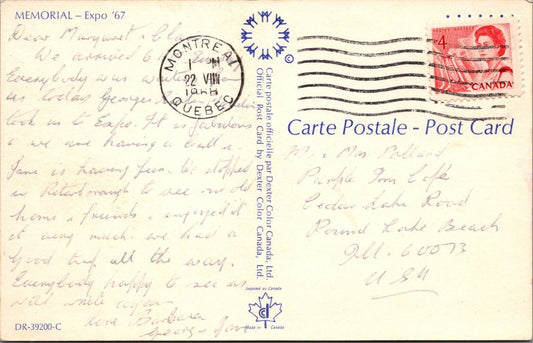 MEMORIAL – Expo '67
Dear Margaret &
We arrived
Everybody was
as today George
took us to Expo. It is fabulous
& we are having a ball.
Jane is having fun. We stopped
in Peterborough to see our old
home & friends & enjoyed it
it very much. We had a
good trip all the way.
Everybody happy to see us
will write again
love Barbara
George & Jane
DR-39200-C
MONTREAL
22 VIII
QUEBEC
4
CANADA
©
Carte postale officielle par Dexter Color Canada, Ltd.
Official Post Card by Dexter Color Canada, Ltd.
Imprimé au Canada
Made in Canada
Carte Postale - Post Card
Mr & Mrs Polland
Purple Cafe
Cedar Lake Road
Round Lake Beach
Ill. 60073
USA